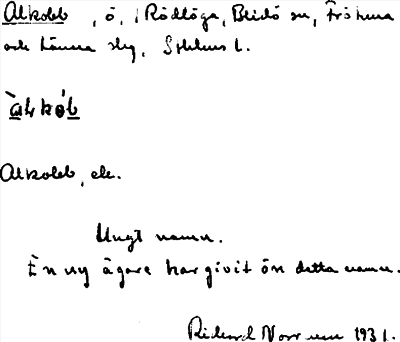 Alkobb, ö, i Rödlöga, Blidö sn, Frötuna
och Länna slg, Sthlms l.
àlkób
Alkobb, ek.
Ungt namn.
En ny ägare har givit ön detta namn.
Rickard Norrman 1931.